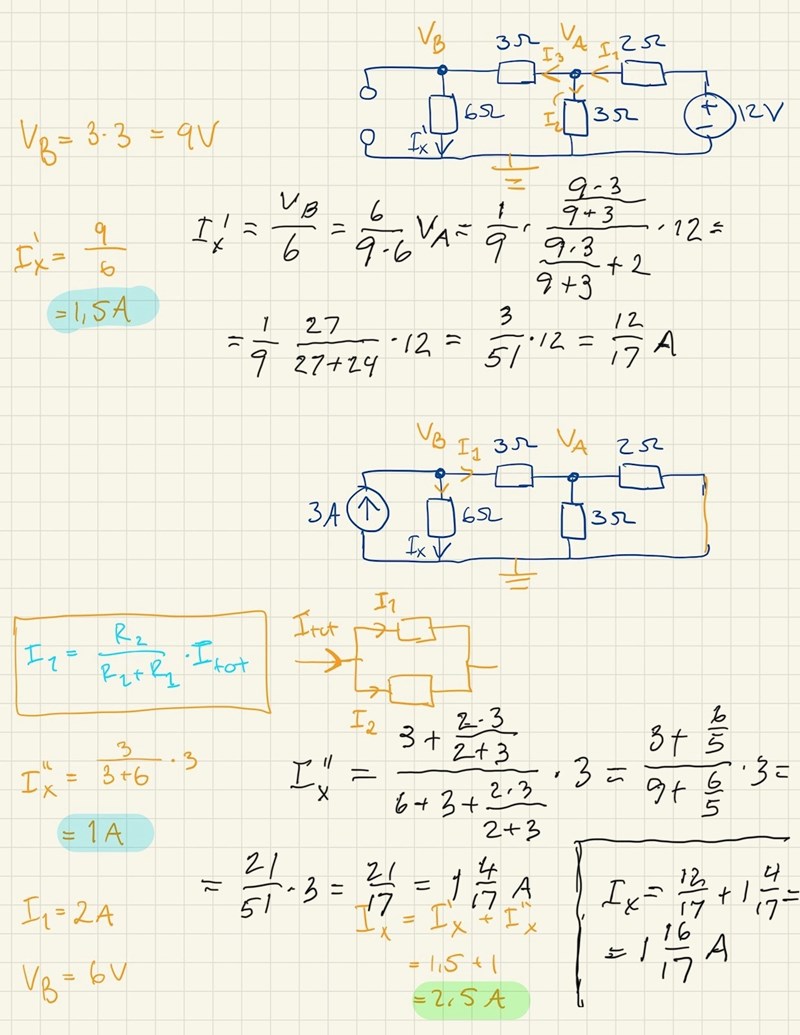 V_B 3Ω V_A 2Ω
I_3 I_1
6Ω I_2 3Ω + − 12V
I_x'
V_B = 3·3 = 9V
I_x' = 9/6
= 1,5A
I_x' = V_B/6 = 6/(9·6) V_A = 1/9 · ((9·3)/(9+3))/((9·3)/(9+3) + 2) · 12 =
= 1/9 27/(27+24) · 12 = 3/51 · 12 = 12/17 A
V_B I_1 3Ω V_A 2Ω
3A 6Ω 3Ω
I_x
I_1 = R_2/(R_2+R_1) · I_tot
I_tot I_1
I_2
I_x'' = 3/(3+6) · 3
= 1A
I_1 = 2A
V_B = 6V
I_x'' = (3 + (2·3)/(2+3))/(6+3+(2·3)/(2+3)) · 3 = (3 + 6/5)/(9 + 6/5) · 3 =
= 21/51 · 3 = 21/17 = 1 4/17 A
I_x = I_x' + I_x''
= 1,5 + 1
= 2,5A
I_x = 12/17 + 1 4/17 =
= 1 16/17 A